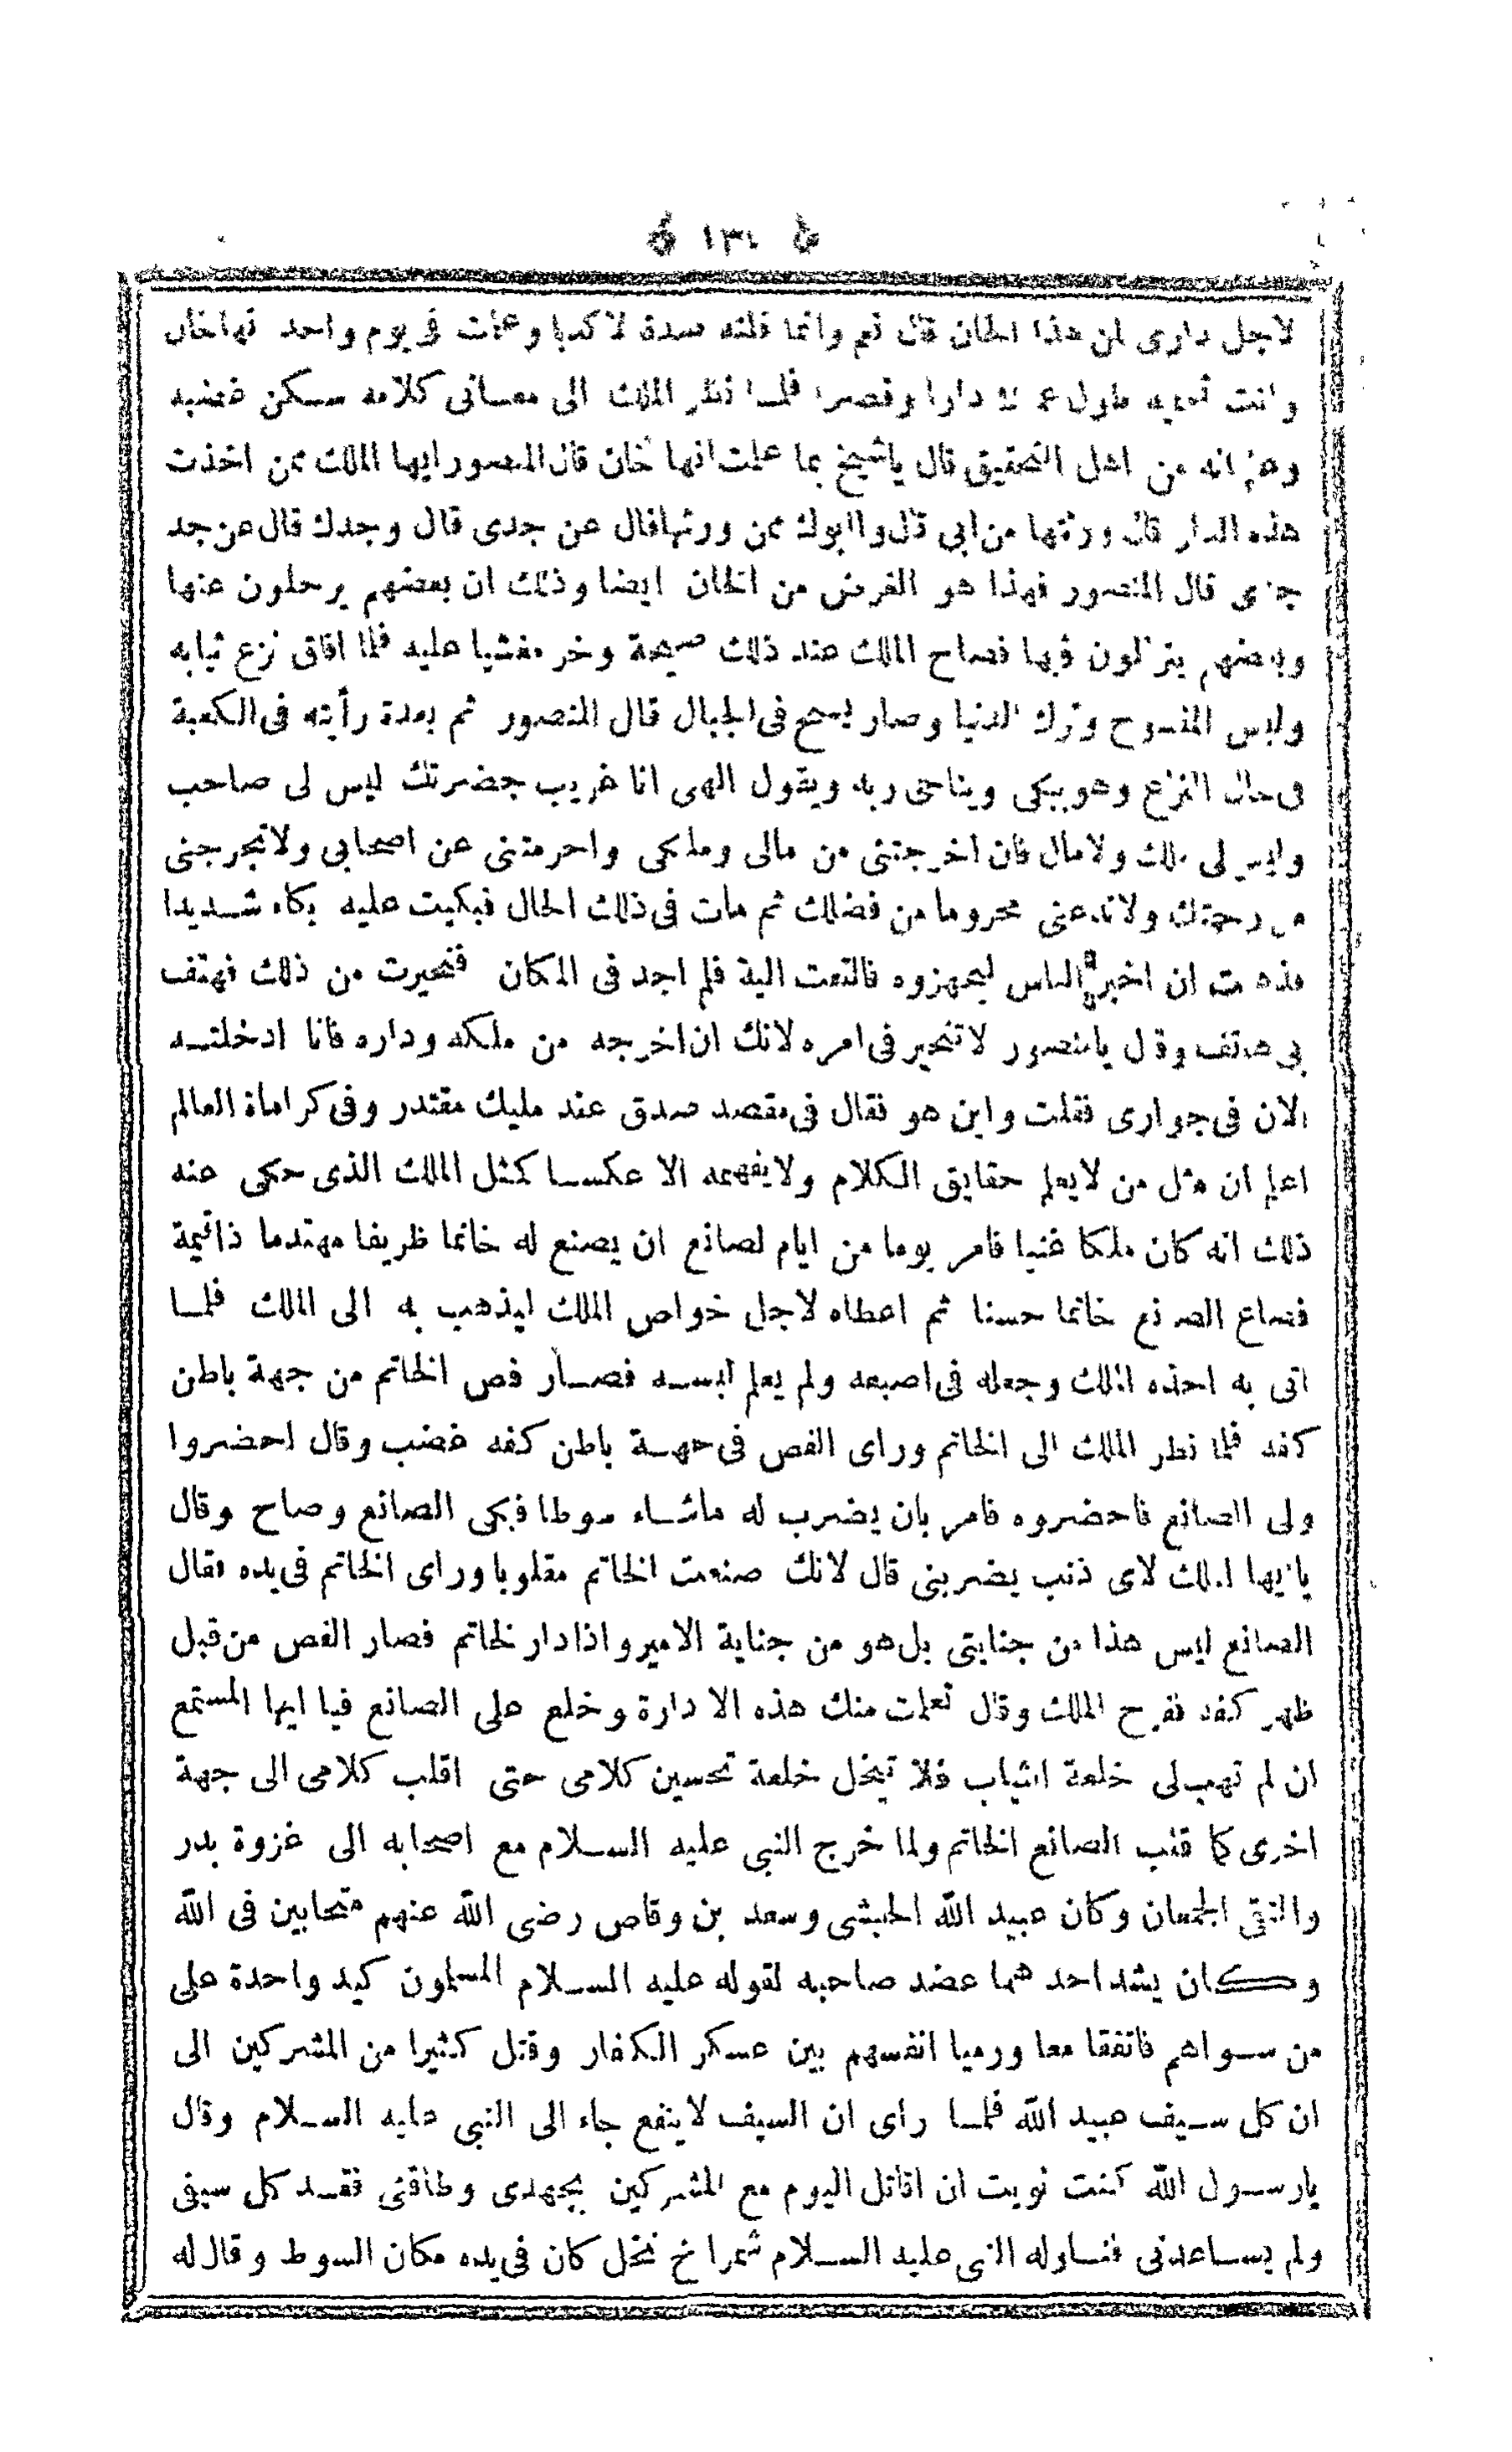 ﴿ ١٣٠ ﴾
لاجل دارى لمن هذا الخان قال نعم وانما قلته صدقا لا كذبا وعملت فى يوم واحد نهاخان
وانت تحميه طول عمرك دارا وقصرا فلما نظر الملك الى معانى كلامه سكن غضبه
وعلم انه من اهل التحقيق قال ياشيخ بما علمت انها خان قال المنصور ايها الملك ممن اخذت
هذه الدار قال ورثتها من ابى قال وابوك ممن ورثها قال عن جدى قال وجدك قال عن جد
جدى قال المنصور فهذا هو الغرض من الخان ايضا وذلك ان بعضهم يرحلون عنها
وبعضهم ينزلون فيها فصاح الملك عند ذلك صيحة وخر مغشيا عليه فلما افاق نزع ثيابه
ولبس المسوح وترك الدنيا وصار يسيح فى الجبال قال المنصور ثم بعدة رأيته فى الكعبة
فى حال النزاع وهو يبكى ويناجى ربه ويقول الهى انا غريب بحضرتك ليس لى صاحب
وليس لى ملك ولا مال فان اخرجتنى من مالى وملكى واحرمتنى عن اصحابى ولا تخرجنى
من رحمتك ولا تدعنى محروما من فضلك ثم مات فى ذلك الحال فبكيت عليه بكاء شديدا
فذهبت ان اخبر الناس ليجهزوه فالتفت اليه فلم اجد فى المكان فتحيرت من ذلك فهتف
بى هاتف وقال يا منصور لا تتحير فى امره لانك ان اخرجه من ملكه وداره فانا ادخلته
الان فى جوارى فقلت واين هو فقال فى مقصد صدق عند مليك مقتدر وفى كراماة العالم
اعلم ان مثل من لا يعلم حقايق الكلام ولا يفهمه الا عكسا كمثل الملك الذى حكى عنه
ذلك انه كان ملكا غنيا فامر يوما من ايام لصانع ان يصنع له خاتما ظريفا مهتدما ذاقيمة
فصاع الصانع خاتما حسنا ثم اعطاه لاجل خواص الملك ليذهب به الى الملك فلما
اتى به اخذه الملك وجعله فى اصبعه ولم يعلم لبسه فصار فص الخاتم من جهة باطن
كفه فلما نظر الملك الى الخاتم وراى الفص فى جهة باطن كفه غضب وقال احضروا
ولى الصانع فاحضروه فامر بان يضرب له ماشاء سوطا فبكى الصانع وصاح وقال
يا ايها الملك لاى ذنب يضربنى قال لانك صنعت الخاتم مقلوبا وراى الخاتم فى يده فقال
الصانع ليس هذا من جنايتى بل هو من جناية الامير واذا دار لخاتم فصار الفص من قبل
ظهر كفه ففرح الملك وقال تعلمت منك هذه الادارة وخلع على الصانع فيا ايها المستمع
ان لم تهب لى خلعة الثياب فلا تبخل خلعة تحسين كلامى حتى اقلب كلامى الى جهة
اخرى كما قلب الصانع الخاتم ولما خرج النبى عليه السلام مع اصحابه الى غزوة بدر
والتقى الجمعان وكان عبيد الله الحبشى وسعد بن وقاص رضى الله عنهم متحابين فى الله
وكان يشد احدهما عضد صاحبه لقوله عليه السلام المسلمون كيد واحدة على
من سواهم فاتفقا معا ورميا انفسهم بين عسكر الكفار وقتل كثيرا من المشركين الى
ان كل سيف عبيد الله فلما راى ان السيف لا ينفع جاء الى النبى عليه السلام وقال
يارسول الله كنت نويت ان اقاتل اليوم مع المشركين بجهدى وطاقتى فقد كل سيفى
ولم يساعدنى فناوله النبى عليه السلام شمراخ نخل كان فى يده مكان السوط وقال له